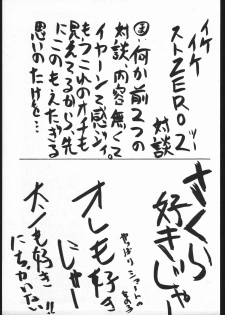 イケイケ
ストZERO2
対談
何か前2つの
対談、内容無くて
イヤーンて感ジ。
もうこれのオチも
見えてるから、先
にこのもえたぎる
思いのたけを…
さくら
好きじゃー
オレも好き
じゃー
やっぱり
オレも好き
にちがいない!!